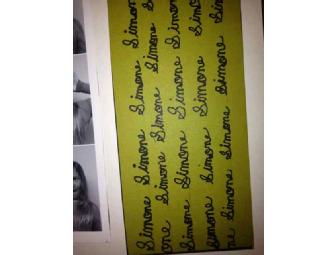 Simone Simone Simone Simone
one Simone Simone Simone Simone
Simone Simone Simone Simone
Simone Simone Simone Simone
ne Simone Simone Simone Simone